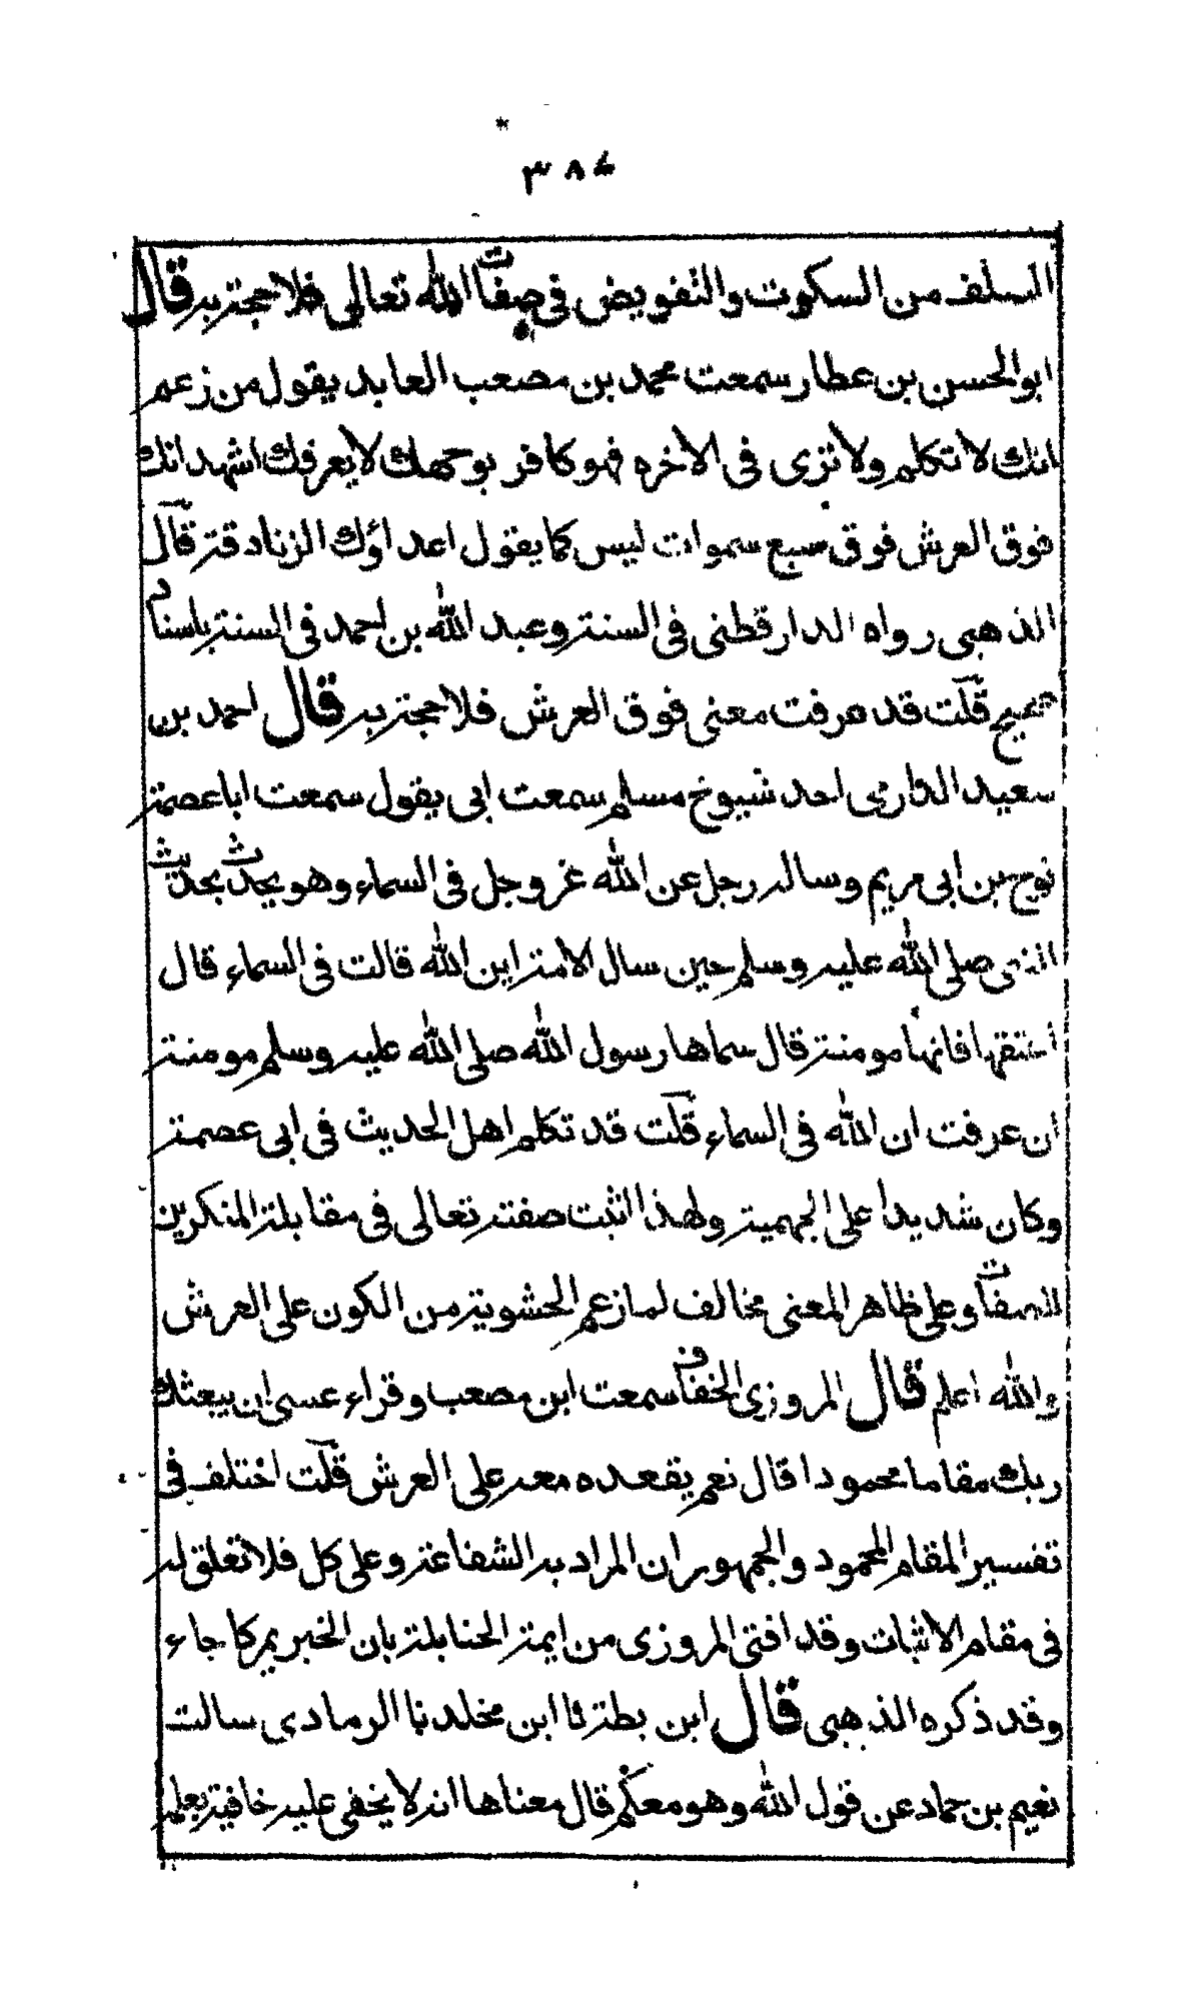 *
٣٨٤
السلف من السكوت والتفويض فى صفات الله تعالى فلا حجة به قال
ابو الحسن بن عطار سمعت محمد بن مصعب العابد يقول من زعم
انك لا تكلم ولا ترى فى الاخره فهو كافر بوجهك لا يعرفك اشهد انك
فوق العرش فوق سبع سموات ليس كما يقول اعداؤك الزنادقة قال
الذهبى رواه الدارقطنى فى السنة وعبد الله بن احمد فى السنة باسناد
صحيح قلت قد عرفت معنى فوق العرش فلا حجة به قال احمد بن
سعيد الدارمى احد شيوخ مسلم سمعت ابى يقول سمعت ابا عصمة
نوح بن ابى مريم وساله رجل عن الله عز وجل فى السماء وهو يحدث بحديث
النبى صلى الله عليه وسلم حين سال الامة اين الله قالت فى السماء قال
اعتقها فانها مومنة قال سماها رسول الله صلى الله عليه وسلم مومنة
ان عرفت ان الله فى السماء قلت قد تكلم اهل الحديث فى ابى عصمة
وكان شديدا على الجهمية ولهذا اثبت صفته تعالى فى مقابلة المنكرين
للصفات وعلى ظاهر المعنى مخالف لما زعم الحشوية من الكون على العرش
والله اعلم قال المروزى الخفاف سمعت ابن مصعب وقراء عسى ان يبعثك
ربك مقاما محمودا قال نعم يقعده معه على العرش قلت اختلف فى
تفسير المقام المحمود والجمهور ان المراد به الشفاعة وعلى كل فلا تعلق له
فى مقام الاثبات وقد افتى المروزى من ايمة الحنابلة بان الخبر يمر كما جاء
وقد ذكره الذهبى قال ابن بطة ثا ابن مخلد نا الرمادى سالت
نعيم بن حماد عن قول الله وهو معكم قال معناها انه لا يخفى عليه خافية بعلمه